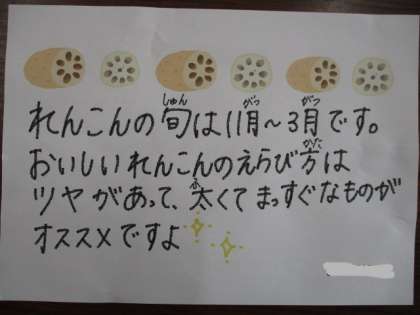 れんこんの旬は11月～3月です。
おいしいれんこんのえらび方は
ツヤがあって、太くてまっすぐなものが
オススメですよ